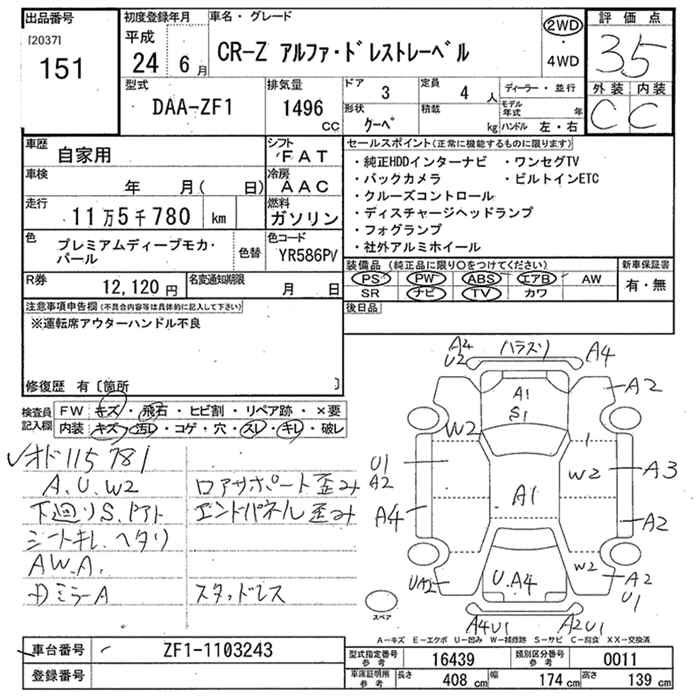 出品番号
[2037]
151
初度登録年月
平成
24 6月
車名・グレード
CR-Z アルファ・ドレストレーベル
2WD
・
4WD
評価点
3.5
外装 内装
C C
型式
DAA-ZF1
排気量
1496
CC
ドア 3
定員 4 人
形状 クーペ
積載 kg
ディーラー・並行
モデル年式 年
ハンドル 左・右
車歴
自家用
シフト
FAT
車検
年 月( 日)
冷房
AAC
走行
11万5千780 km
燃料
ガソリン
色
プレミアムディープモカ・パール
色替
色コード
YR586PV
R券
12,120 円
名変通知期限
月 日
セールスポイント(正常に機能するものに限ります)
・純正HDDインターナビ ・ワンセグTV
・バックカメラ ・ビルトインETC
・クルーズコントロール
・ディスチャージヘッドランプ
・フォグランプ
・社外アルミホイール
装備品 (純正品に限り○をつけてください)
PS PW ABS エアB AW
SR ナビ TV カワ
新車保証書
有・無
後日品
注意事項申告欄(不具合内容等は具体的に記入して下さい)
※運転席アウターハンドル不良
修復歴 有〔箇所 〕
検査員記入欄
FW キズ・飛石・ヒビ割・リペア跡・×要
内装 キズ・汚レ・コゲ・穴・スレ・キレ・破レ
✓オド115781
A.U.W2
下廻りS.
シートキレ.ヘタリ
AW.A.
DミラーA
ロアサポート歪み
エンドパネル歪み
スタッドレス
A4
U2
ハラスリ
A4
A2
A1
S1
W2
U1
A2
W2
A3
A4
A1
A2
UA2
U.A4
W2
A2
U1
スペア
A4U1
A2U1
A-キズ E-エクボ U-凹み W-補修跡 S-サビ C-腐食 XX-交換済
車台番号
ZF1-1103243
登録番号
型式指定番号
参考
16439
類別区分番号
参考
0011
車庫証明用
参考
長さ 408 cm 幅 174 cm 高さ 139 cm